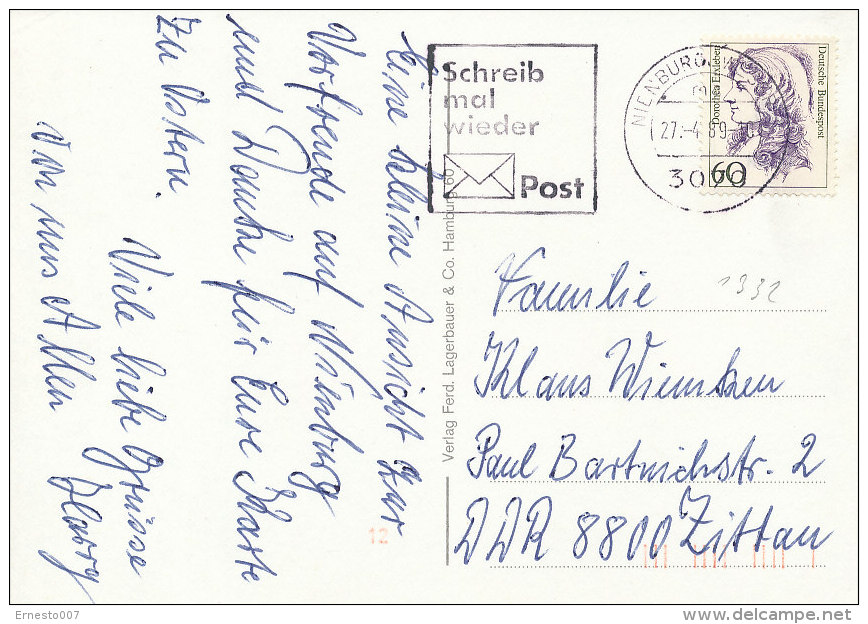 eine kleine Ansicht zur
Vorfreude auf Nienburg
und Danke für Eure Karte
zu Ostern.
Viele liebe Grüsse
von uns Allen
Harry
Schreib
mal
wieder
Post
NIENBURG
27.-4.89
3070
Deutsche Bundespost
Dorothea Erxleben
60
Verlag Ferd. Lagerbauer & Co. Hamburg 60
1332
Familie
Klaus Wiemken
Paul Bartnichstr. 2
DDR 8800 Zittau
12
Ernesto007
delcampe.net